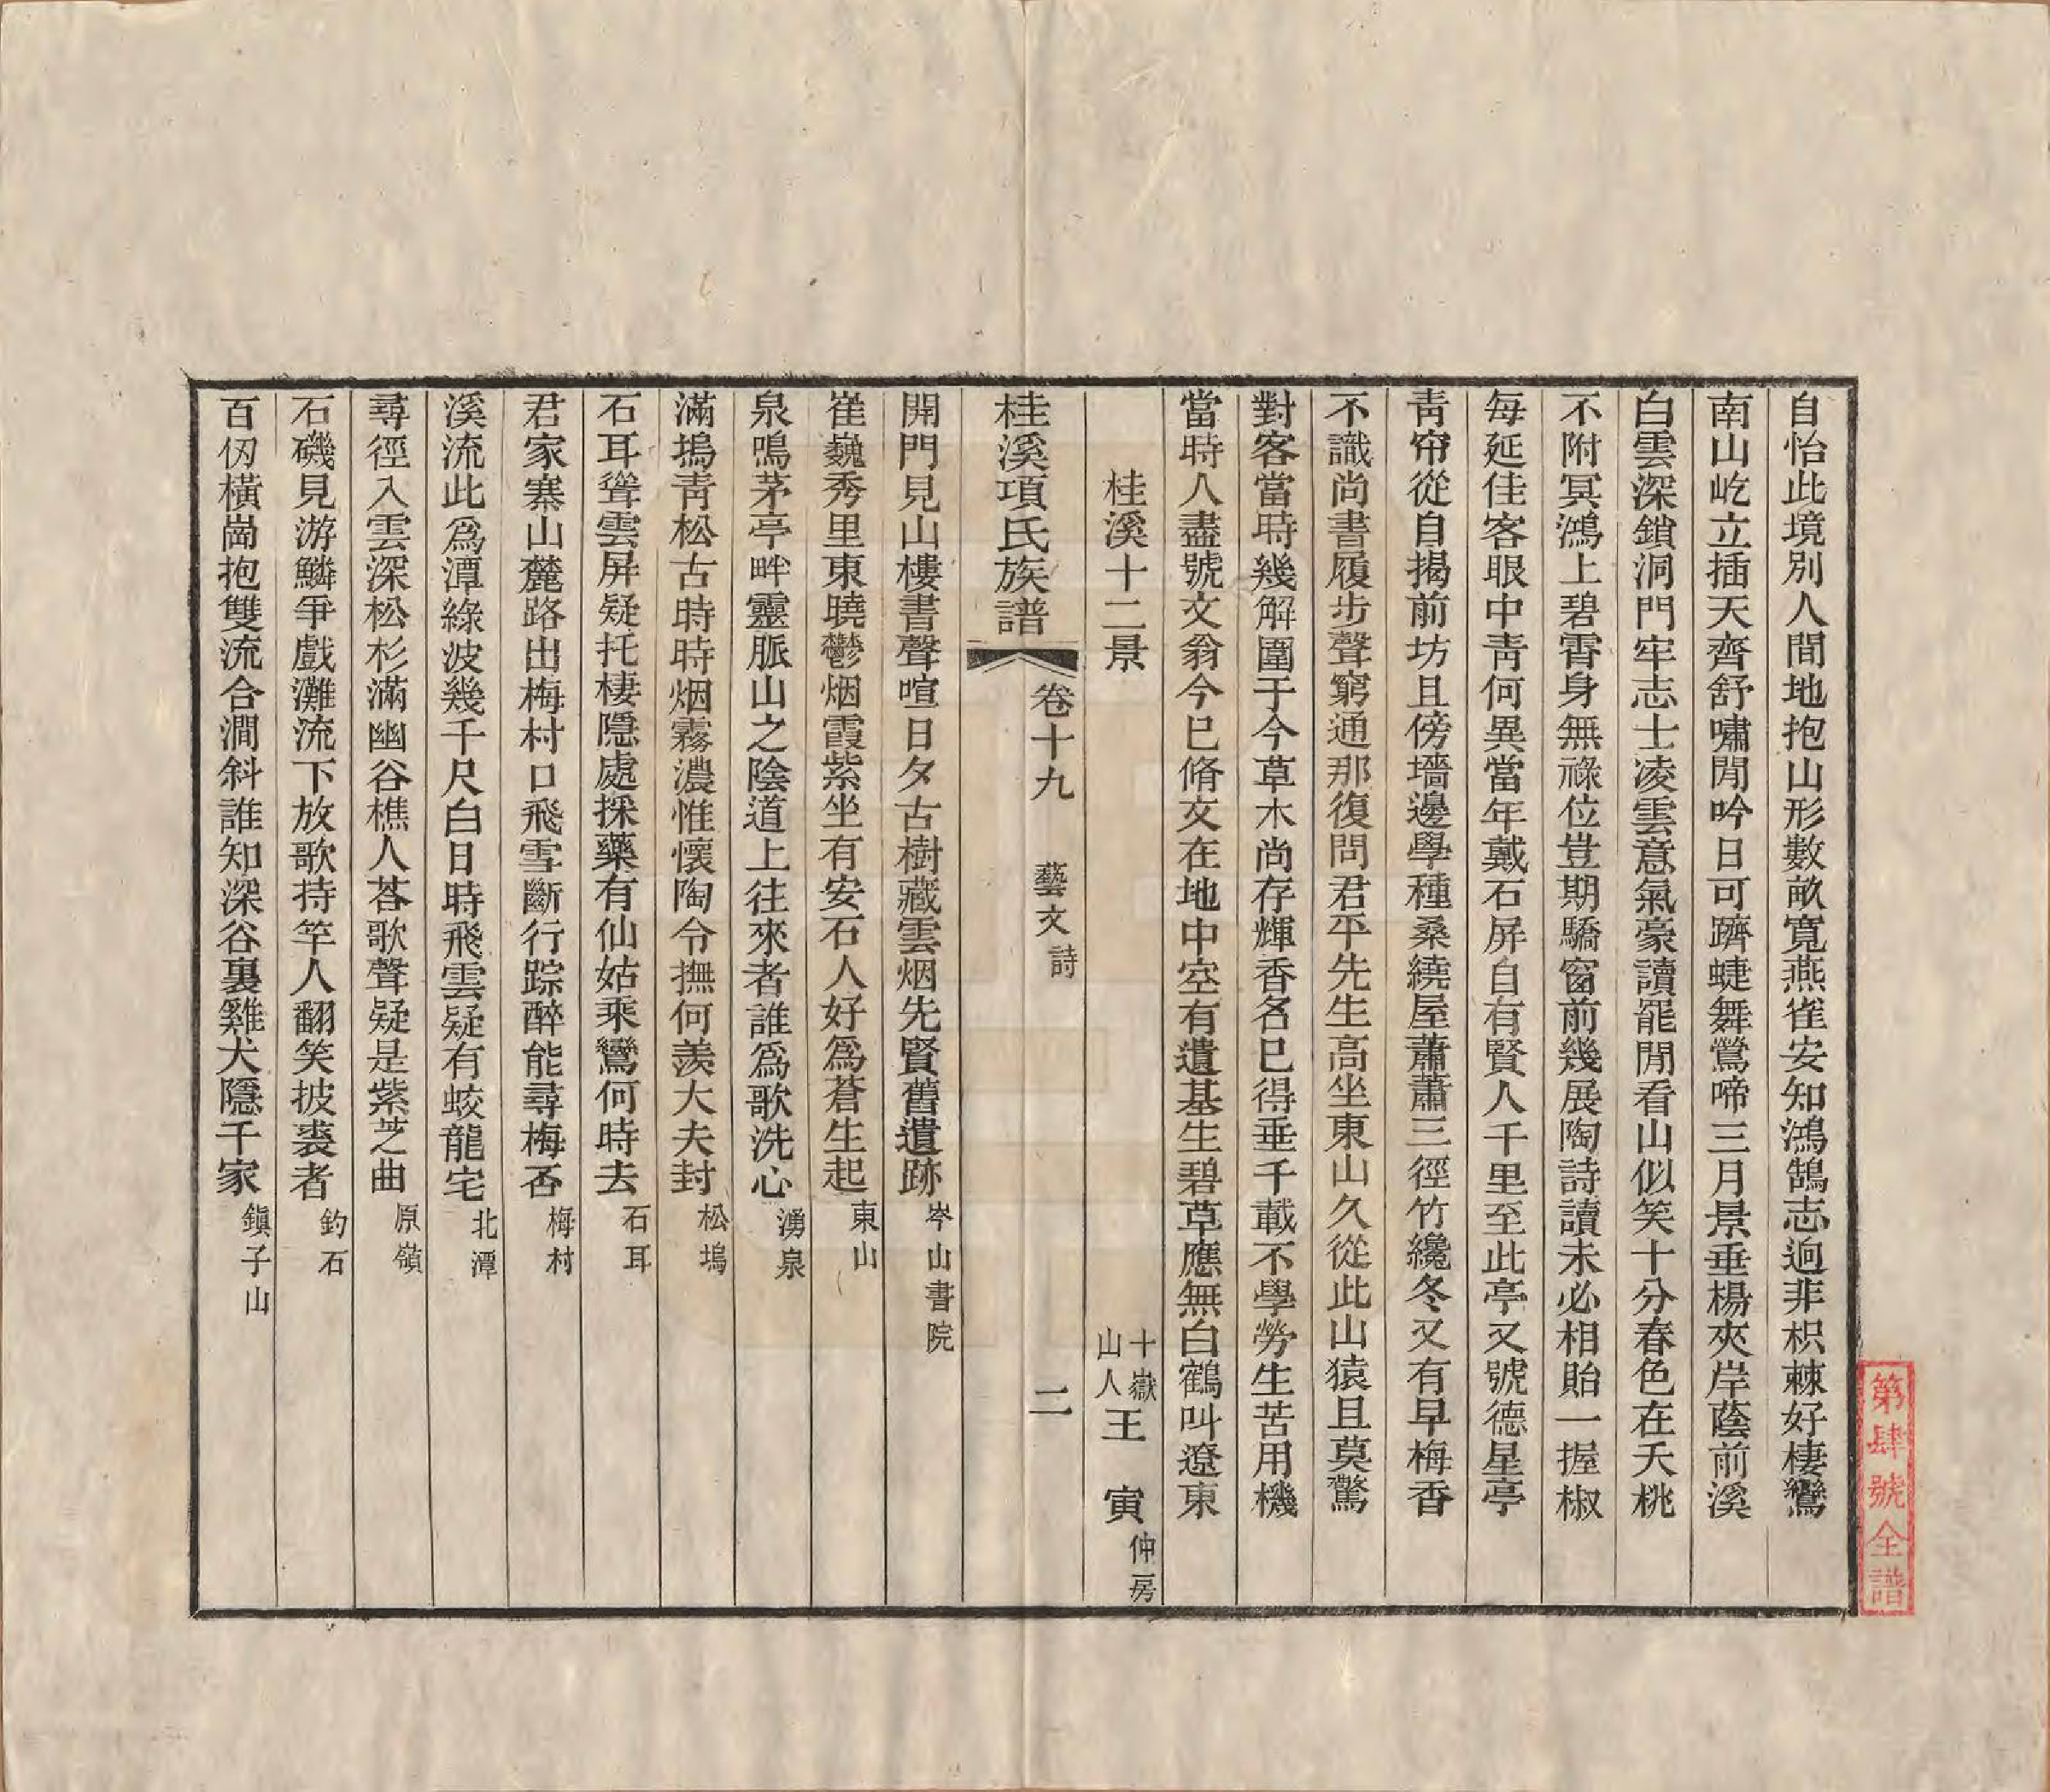 自怡此境別人間地抱山形數畝寬燕雀安知鴻鵠志迥非枳棘好棲鸞
南山屹立插天齊舒嘯閒吟日可躋蜨舞鶯啼三月景垂楊夾岸蔭前溪
白雲深鎖洞門牢志士凌雲意氣豪讀罷閒看山似笑十分春色在夭桃
不附冥鴻上碧霄身無祿位豈期驕窗前幾展陶詩讀未必相貽一握椒
每延佳客眼中青何異當年戴石屏自有賢人千里至此亭又號德星亭
青帘從自揭前坊且傍墻邊學種桑繞屋蕭蕭三徑竹纔冬又有早梅香
不識尚書履步聲窮通那復問君平先生高坐東山久從此山猿且莫驚
對客當時幾解圍于今草木尚存輝香名已得垂千載不學勞生苦用機
當時人盡號文翁今已脩文在地中空有遺基生碧草應無白鶴叫遼東
桂溪十二景 十嶽山人王 寅仲房
桂溪項氏族譜 卷十九 藝文詩 二
開門見山樓書聲喧日夕古樹藏雲烟先賢舊遺跡岑山書院
崔巍秀里東曉鬱烟霞紫坐有安石人好爲蒼生起東山
泉鳴茅亭畔靈脈山之陰道上往來者誰爲歌洗心湧泉
滿塢青松古時時烟霧濃惟懷陶令撫何羨大夫封松塢
石耳聳雲屏疑托棲隱處採藥有仙姑乘鸞何時去石耳
君家寨山麓路出梅村口飛雪斷行踪醉能尋梅否梅村
溪流此爲潭綠波幾千尺白日時飛雲疑有蛟龍宅北潭
尋徑入雲深松杉滿幽谷樵人荅歌聲疑是紫芝曲原嶺
石磯見游鱗爭戲灘流下放歌持竿人翻笑披裘者釣石
百仭橫崗抱雙流合澗斜誰知深谷裏雞犬隱千家鎭子山
第肆號全譜